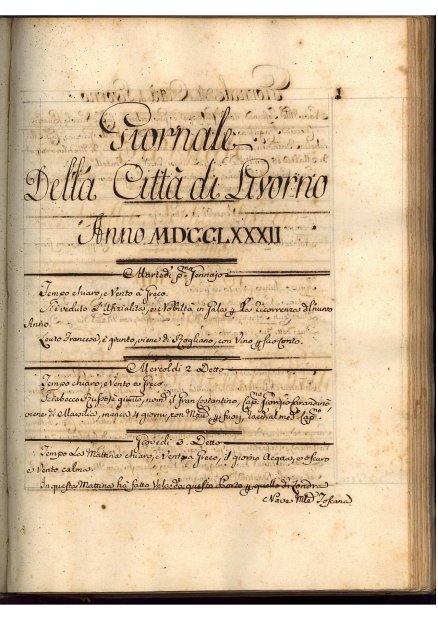 1
Giornale
Della Città di Livorno
Anno MDCCLXXXII
Martedì p.mo Gennajo
Tempo chiaro, e Vento a Greco.
Si è veduto l'Ufizialità, e Nobiltà in Gala p la Ricorrenza di nuovo
Anno.
Leuto Francese, è giunto, viene di Rogliano, con Vino p suo Conto.
Mercoldì 2 Detto
Tempo chiaro, e Vento a Greco
Trabaccolo Russo è giunto, nom.o il Gran Costantino, Cap.no Giorgio
viene di Marsilia, manca 4 giorni, con p
Giovedì 3 Detto
Tempo La Mattina chiaro, e Vento a Greco, il giorno Acqua, e oscuro
e Vento calma.
In questa Mattina ha fatto Vela da questo Porto p quello di Londra
Nave Toscana